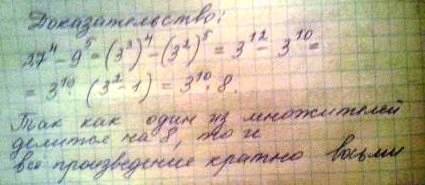 Доказательство:
27⁴ - 9⁵ = (3³)⁴ - (3²)⁵ = 3¹² - 3¹⁰ =
= 3¹⁰ (3² - 1) = 3¹⁰ · 8.
Так как один из множителей
делится на 8, то и
все произведение кратно восьми